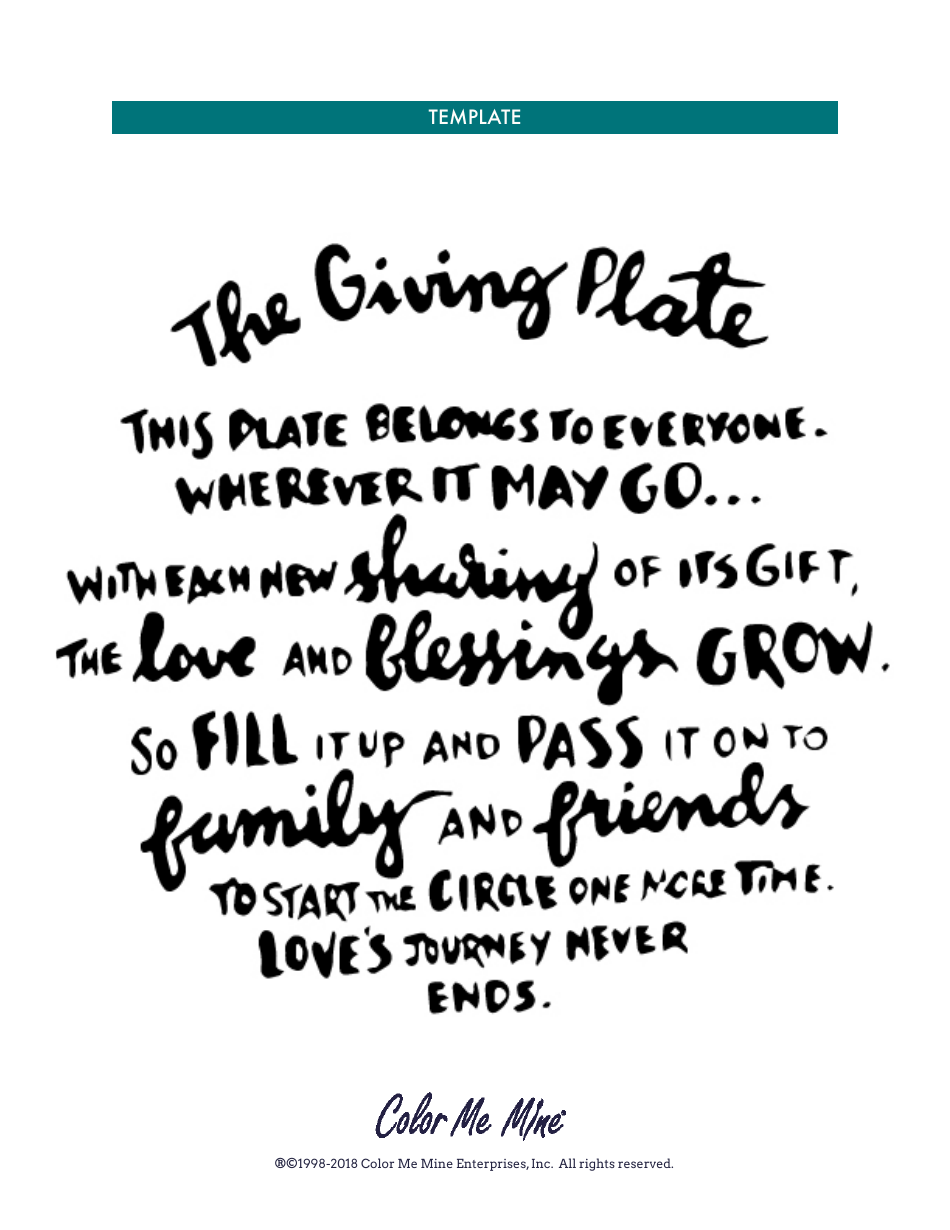 TEMPLATE
The Giving Plate
THIS PLATE BELONGS TO EVERYONE.
WHEREVER IT MAY GO...
WITH EACH NEW sharing OF ITS GIFT,
THE love AND blessings GROW.
SO FILL IT UP AND PASS IT ON TO
family AND friends
TO START THE CIRCLE ONE MORE TIME.
LOVE'S JOURNEY NEVER
ENDS.
Color Me Mine®
®©1998-2018 Color Me Mine Enterprises, Inc. All rights reserved.